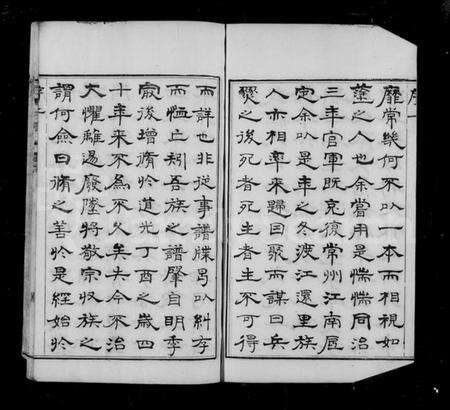 序一
靡常幾何不以一本而相視如
塗之人也余嘗用是惴惴同治
三年官軍既克復常州江南底
定余以是年之冬渡江還里族
人亦相率來歸因聚而謀曰兵
燹之後死者死生者生不可得
而詳也非從事譜牒曷以糾存
而恤亡矧吾族之譜肇自明季
厥後增脩於道光丁酉之歲四
十年來不爲不久矣夫今不治
大懼離逷廢墬將敬宗收族之
謂何僉曰脩之善於是經始於